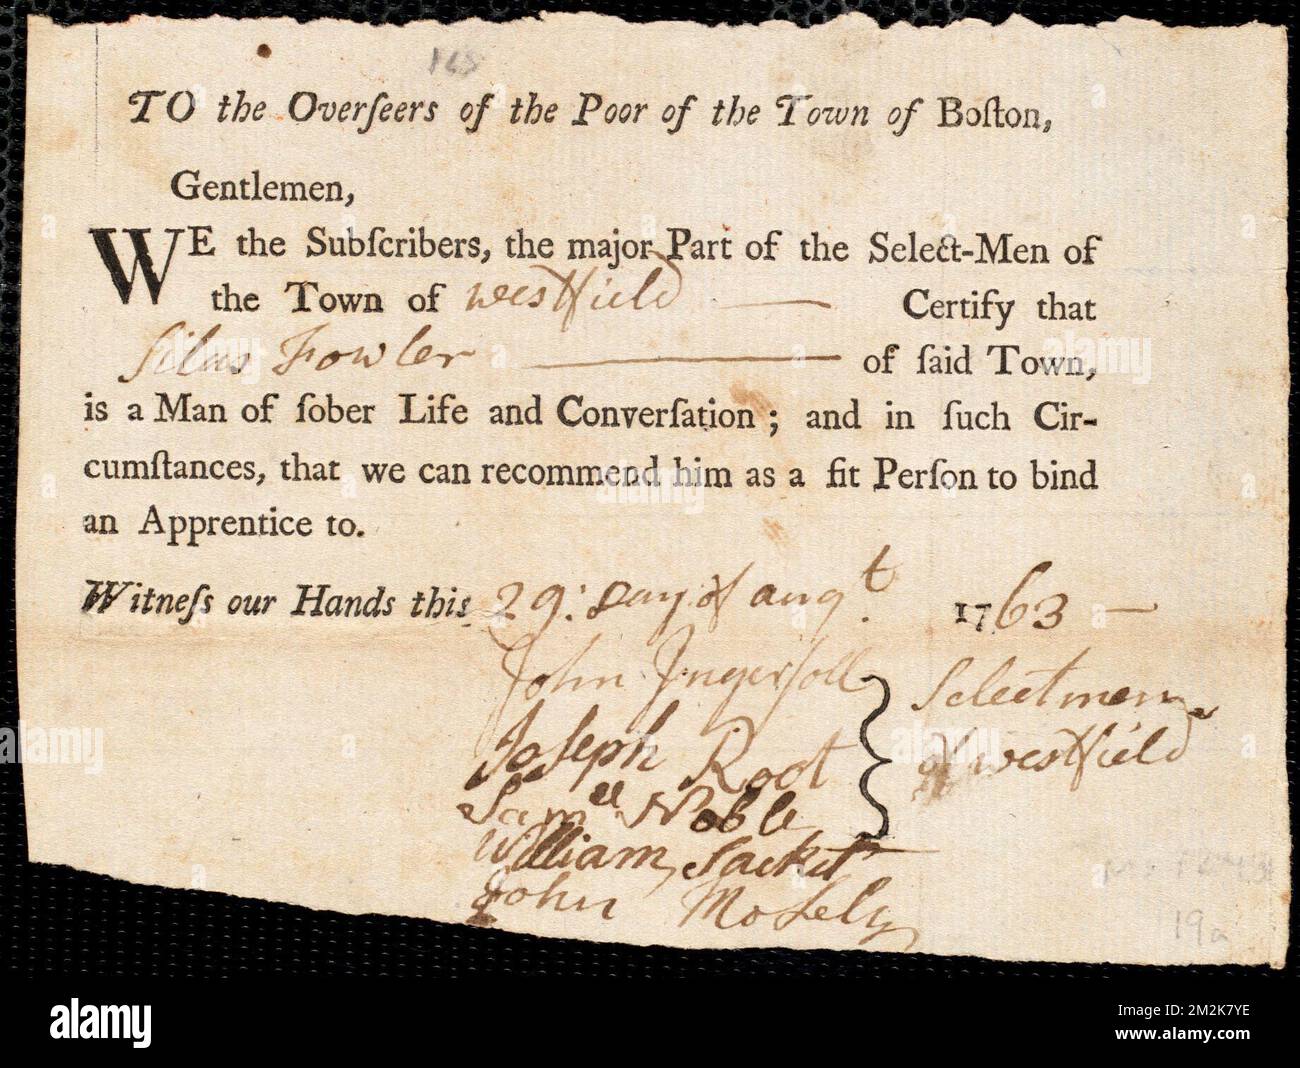 165
TO the Overſeers of the Poor of the Town of Boſton,
Gentlemen,
WE the Subſcribers, the major Part of the Select-Men of
the Town of Westfield — Certify that
Silas Fowler — of ſaid Town,
is a Man of ſober Life and Converſation ; and in ſuch Cir-
cumſtances, that we can recommend him as a fit Perſon to bind
an Apprentice to.
Witneſs our Hands this 29: Day of augt. 1763 —
John Ingersoll
Joseph Root
Samell Noble
William Sacket
John Mosely
Selectmen
of westfield
19a
alamy
Image ID: 2M2K7YE
www.alamy.com